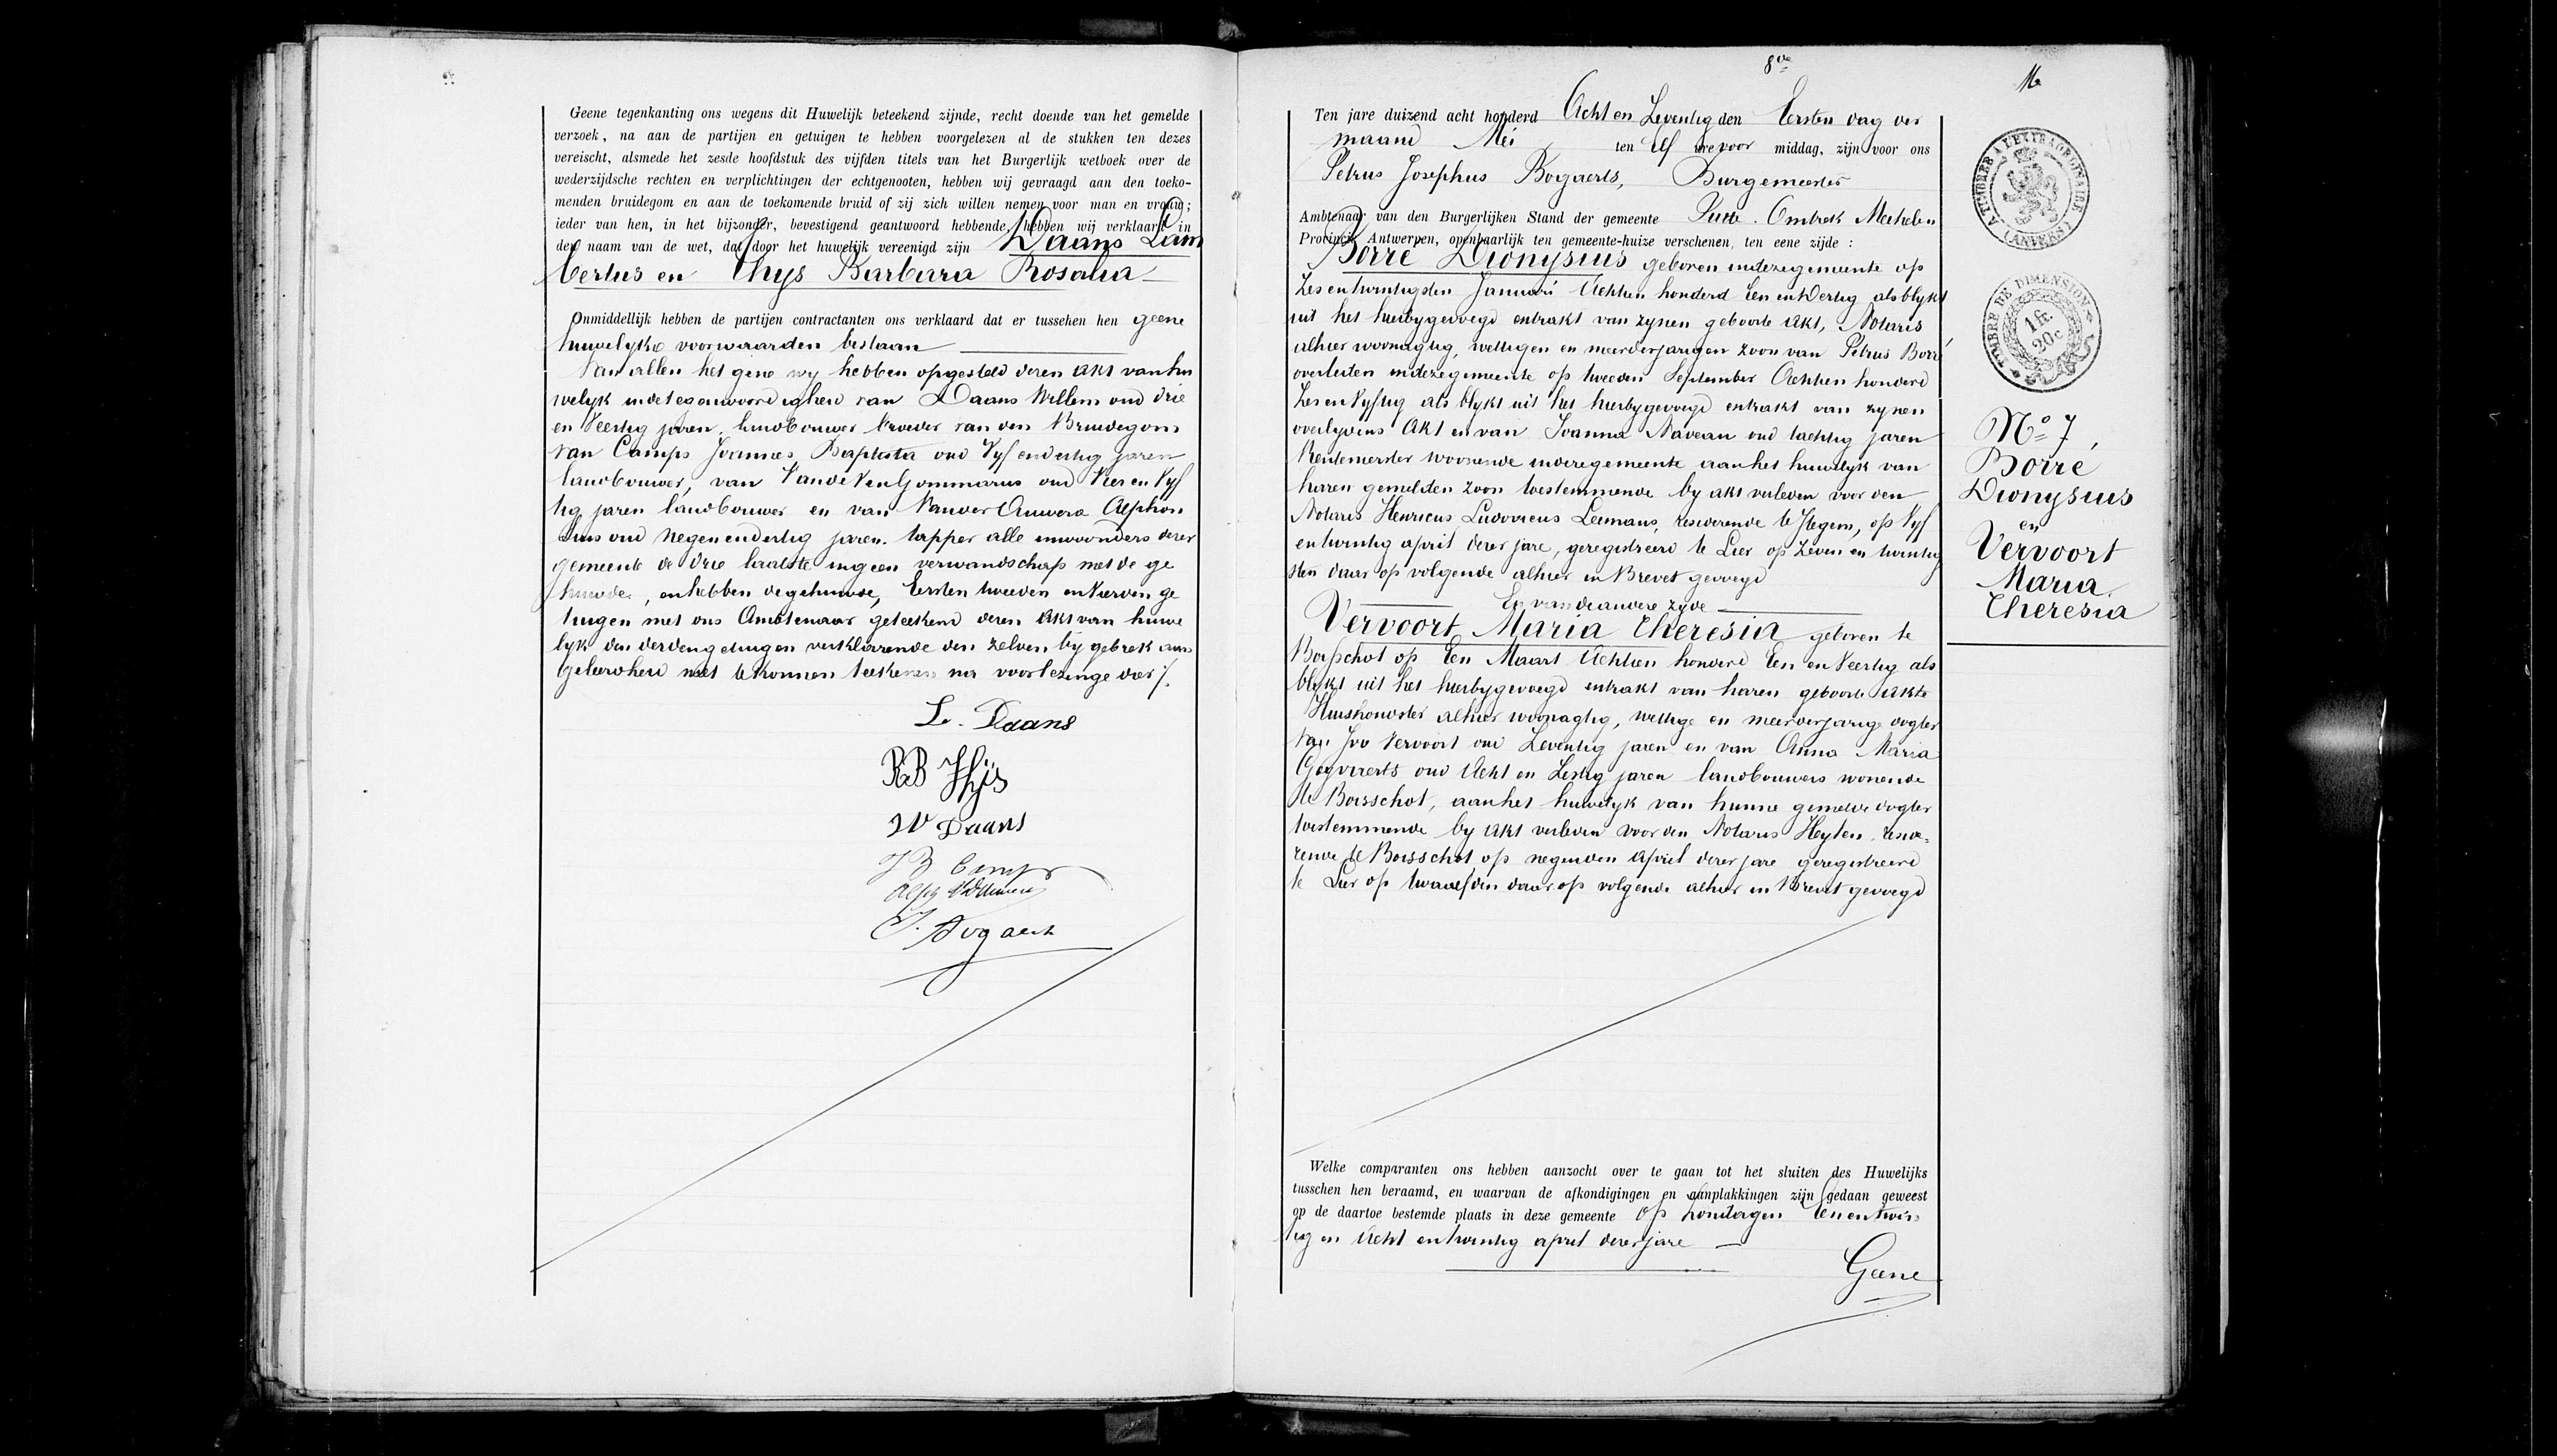 Geene tegenkanting ons wegens dit Huwelijk beteekend zijnde, recht doende van het gemelde
verzoek, na aan de partijen en getuigen te hebben voorgelezen al de stukken ten dezes
vereischt, alsmede het zesde hoofdstuk des vijfden titels van het Burgerlijk wetboek over de
wederzijdsche rechten en verplichtingen der echtgenooten, hebben wij gevraagd aan den toeko-
menden bruidegom en aan de toekomende bruid of zij zich willen nemen voor man en vrouw;
ieder van hen, in het bijzonder, bevestigend geantwoord hebbende, hebben wij verklaard in
den naam van de wet, dat door het huwelijk vereenigd zijn Daans Lam
bertus en Thys Barbara Rosalia
Onmiddellijk hebben de partijen contractanten ons verklaard dat er tusschen hen geene
huwelyke voorwaarden bestaan
Van allen het gene wy hebben opgesteld dezen akt van hu
welyk in de tegenwoordigheid van Daans Willem oud drie
en Veertig jaren, landbouwer broeder van den Bruidegom
van Camps Joannes Baptista oud Vyf en dertig jaren
landbouwer, van Van de Ven Gommarus oud Vier en Vyf
tig jaren landbouwer en van Van der Auwera Alphon
sus oud negen en dertig jaren tapper alle inwoonders dezer
gemeente de drie laatste in geen verwandschap met de ge
huwde, en hebben de gehuwde, Eersten tweeden en Vierden ge
tuigen met ons Ambtenaar geteekend dezen Akt van huwe
lyk den derden getuigen verklarende den zelven by gebrek aan
geleerdheid niet te konnen teekenen na voorlezinge dier /.
L. Daans
R B Thijs
W Daans
J B Camps
Alph VdAuwera
J. Bogaerts
8ste
Ten jare duizend acht honderd Acht en Zeventig den Eersten dag der
maand Mei ten Elf ure voor middag, zijn voor ons
Petrus Josephus Bogaerts, Burgemeester
Ambtenaar van den Burgerlijken Stand der gemeente Putte. Omtrek Mechelen
Provincie Antwerpen, openbaarlijk ten gemeente-huize verschenen, ten eene zijde :
Borré Dionysius geboren in deze gemeente op
Zes en twintigsten Januari Achttien honderd Een en Dertig als blykt
uit het hierbygevoegd extrakt van zynen geboorte Akt, Notaris
alhier woonagtig, wettigen en meerderjarigen zoon van Petrus Borré
overleden in deze gemeente op tweeden September Achttien honderd
Zes en Vyftig als blykt uit het hierbygevoegd extrakt van zynen
overlydens Akt en van Joanna Naveau oud tachtig jaren
Rentenierster woonende in deze gemeente aan het huwelyk van
haren gemelden zoon toestemmende by akt verleden voor den
Notaris Henricus Ludovicus Leemans, resideerende te Itegem, op Vyf
en twintig april dezer jare, geregistreerd te Lier op Zeven en twintig
sten daar op volgende alhier in Brevet gevoegd
En van de andere zyde
Vervoort Maria Theresia geboren te
Boisschot op Een Maart Achttien honderd Een en Veertig als
blykt uit het hierbygevoegd extrakt van haren geboorte Akte
Huishoudster alhier woonagtig, wettige en meerderjarige dogter
van Ivo Vervoort oud Zeventig jaren en van Anna Maria
oud Acht en Zestig jaren landbouwers wonende
te Boisschot, aan het huwelyk van hunne gemelde dogter
toestemmende by akt verleden voor den Notaris Heylen reside-
rende te Boisschot op negenden April dezer jare geregistreerd
te Lier op twaalfden daar op volgende alhier in Brevet gevoegd
Welke comparanten ons hebben aanzocht over te gaan tot het sluiten des Huwelijks
tusschen hen beraamd, en waarvan de afkondigingen en aanplakkingen zijn gedaan geweest
op de daartoe bestemde plaats in deze gemeente op zondagen Een en twin
tig en Acht en twintig april dezer jare
Geene
A TIMBRE A L'EXTRAORDINAIRE
(ANVERS)
TIMBRE DE DIMENSION
1 fr.
20 c
No 7
Borré
Dionysius
en
Vervoort
Maria
Theresia